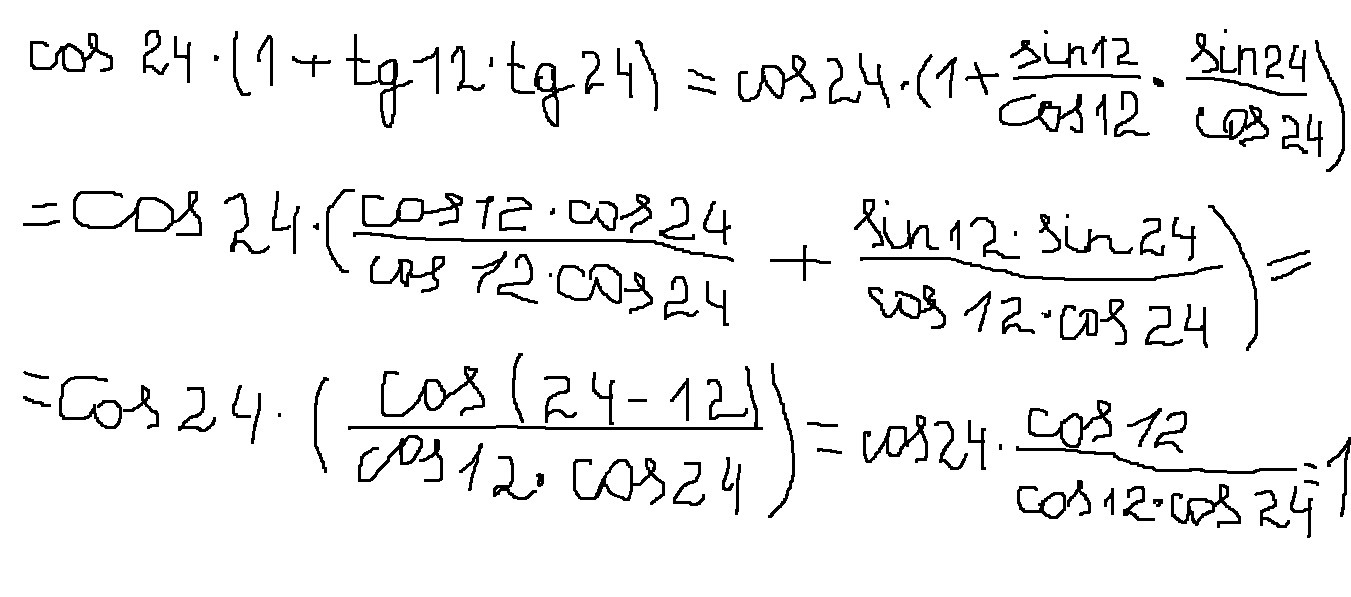 cos 24·(1+tg12·tg24) = cos24·(1+sin12/cos12·sin24/cos24)
=cos 24·(cos12·cos24/cos12·cos24 + sin12·sin24/cos12·cos24)=
=cos24·(cos(24-12)/cos12·cos24)=cos24·cos12/cos12·cos24=1